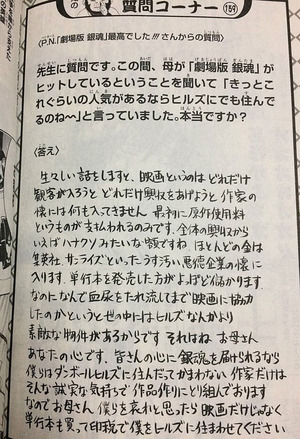 の
質問コーナー 159
〈P.N.「劇場版 銀魂」最高でした!!! さんからの質問〉
先生に質問です。この間、母が「劇場版 銀魂」が
ヒットしているということを聞いて「きっとこ
れぐらいの人気があるならヒルズにでも住んで
るのね〜」と言っていました。本当ですか?
〈答え〉
生々しい話をしますと、映画というのは どれだけ
観客が入ろうと どれだけ興収をあげようと 作家の
懐には何も入ってきません 最初に原作使用料
というものが支払われるのみです。全体の興収から
いえばハナクソみたいな額ですね。ほとんどの金は
集英社 サンライズといったうす汚い悪徳企業の懐に
入ります。単行本を発売した方がよほど儲かります。
なのになんで血尿をたれ流してまで映画に協力
したのかというと世の中にはヒルズなんかより
素敵な物件があるからです それはね お母さん
あなたの心です。皆さんの心に銀魂を届けられるなら
僕らはダンボールヒルズに住んだってかまわない 作家だけは
そんな誠実な気持ちで作品作りにとり組んでおります
なのでお母さん 僕らを哀れと思ったら映画だけじゃなく
単行本も買って印税で僕をヒルズに住まわせてください